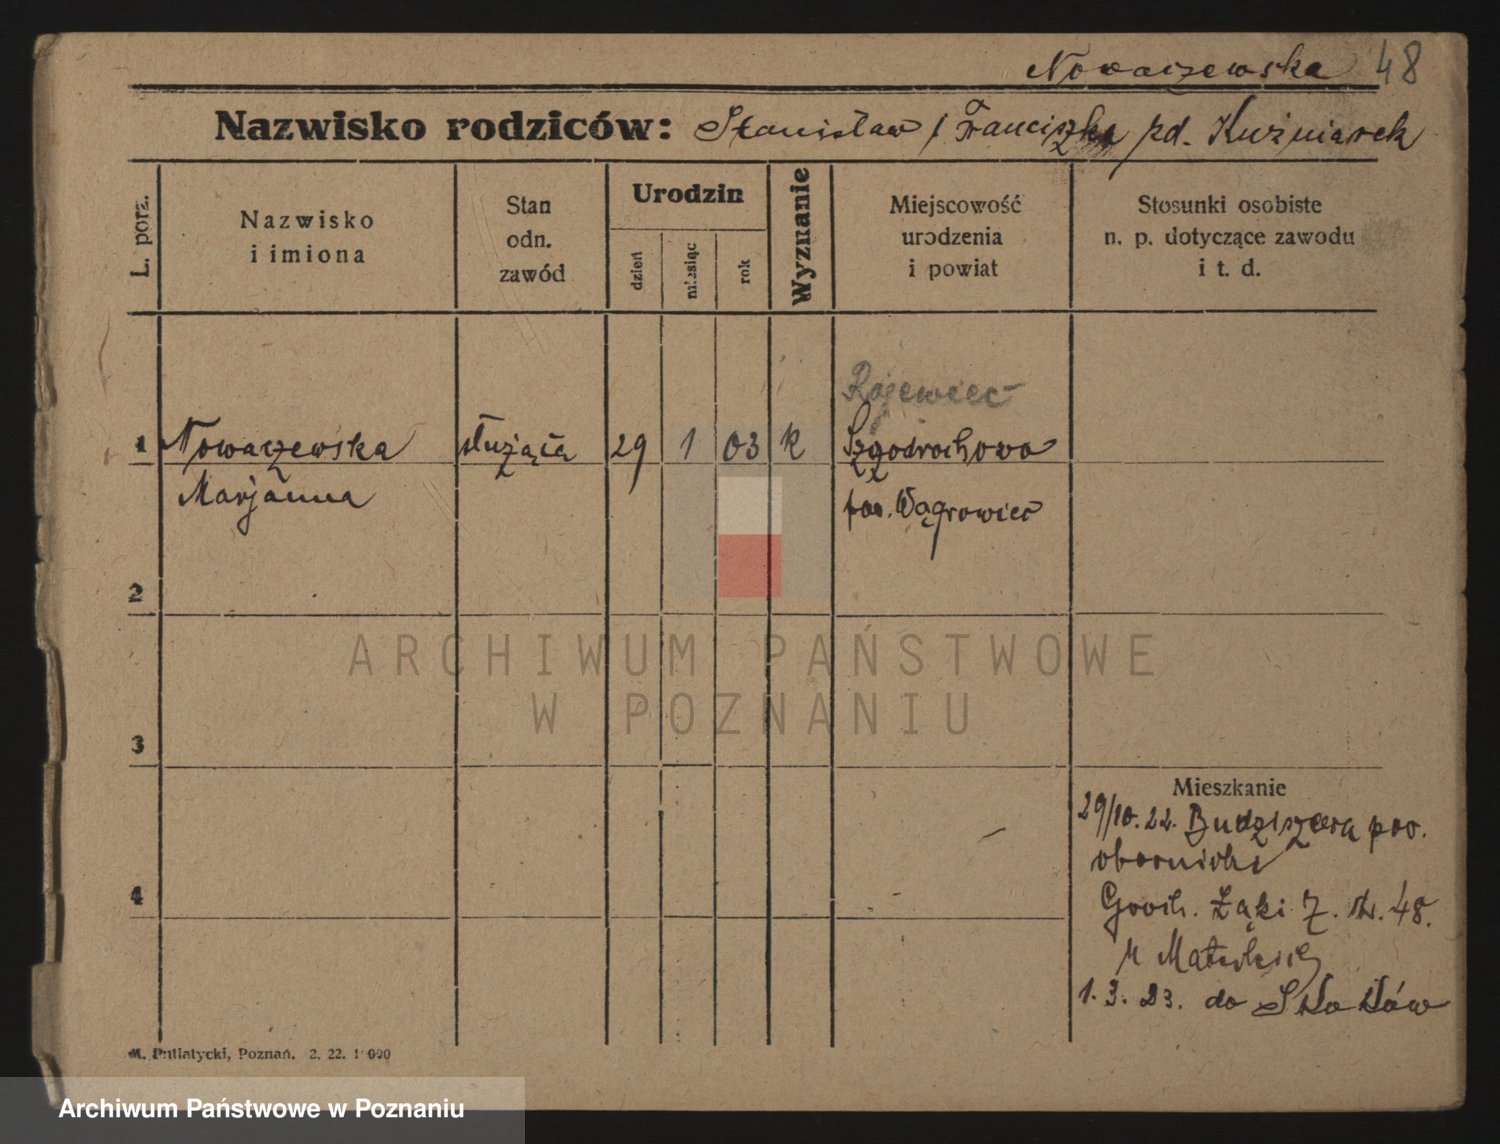 Nowaczewska 48
Nazwisko rodziców: Stanisław / Franciszka pd. Kuźniarek
L. porz.
Nazwisko
i imiona
Stan
odn.
zawód
Urodzin
dzień
miesiąc
rok
Wyznanie
Miejscowość
urodzenia
i powiat
Stosunki osobiste
n. p. dotyczące zawodu
i t. d.
Rojewiec
1 Nowaczewska służąca 29 1 03 k
Marjanna pow. Wągrowiec
2
ARCHIWUM PAŃSTWOWE
W POZNANIU
3
Mieszkanie
29/10. 22. pow.
obornicki
4
Łąki 7. 48.
1. 3. 23. do
M. Putiatycki, Poznań. 2. 22. 1 000
Archiwum Państwowe w Poznaniu